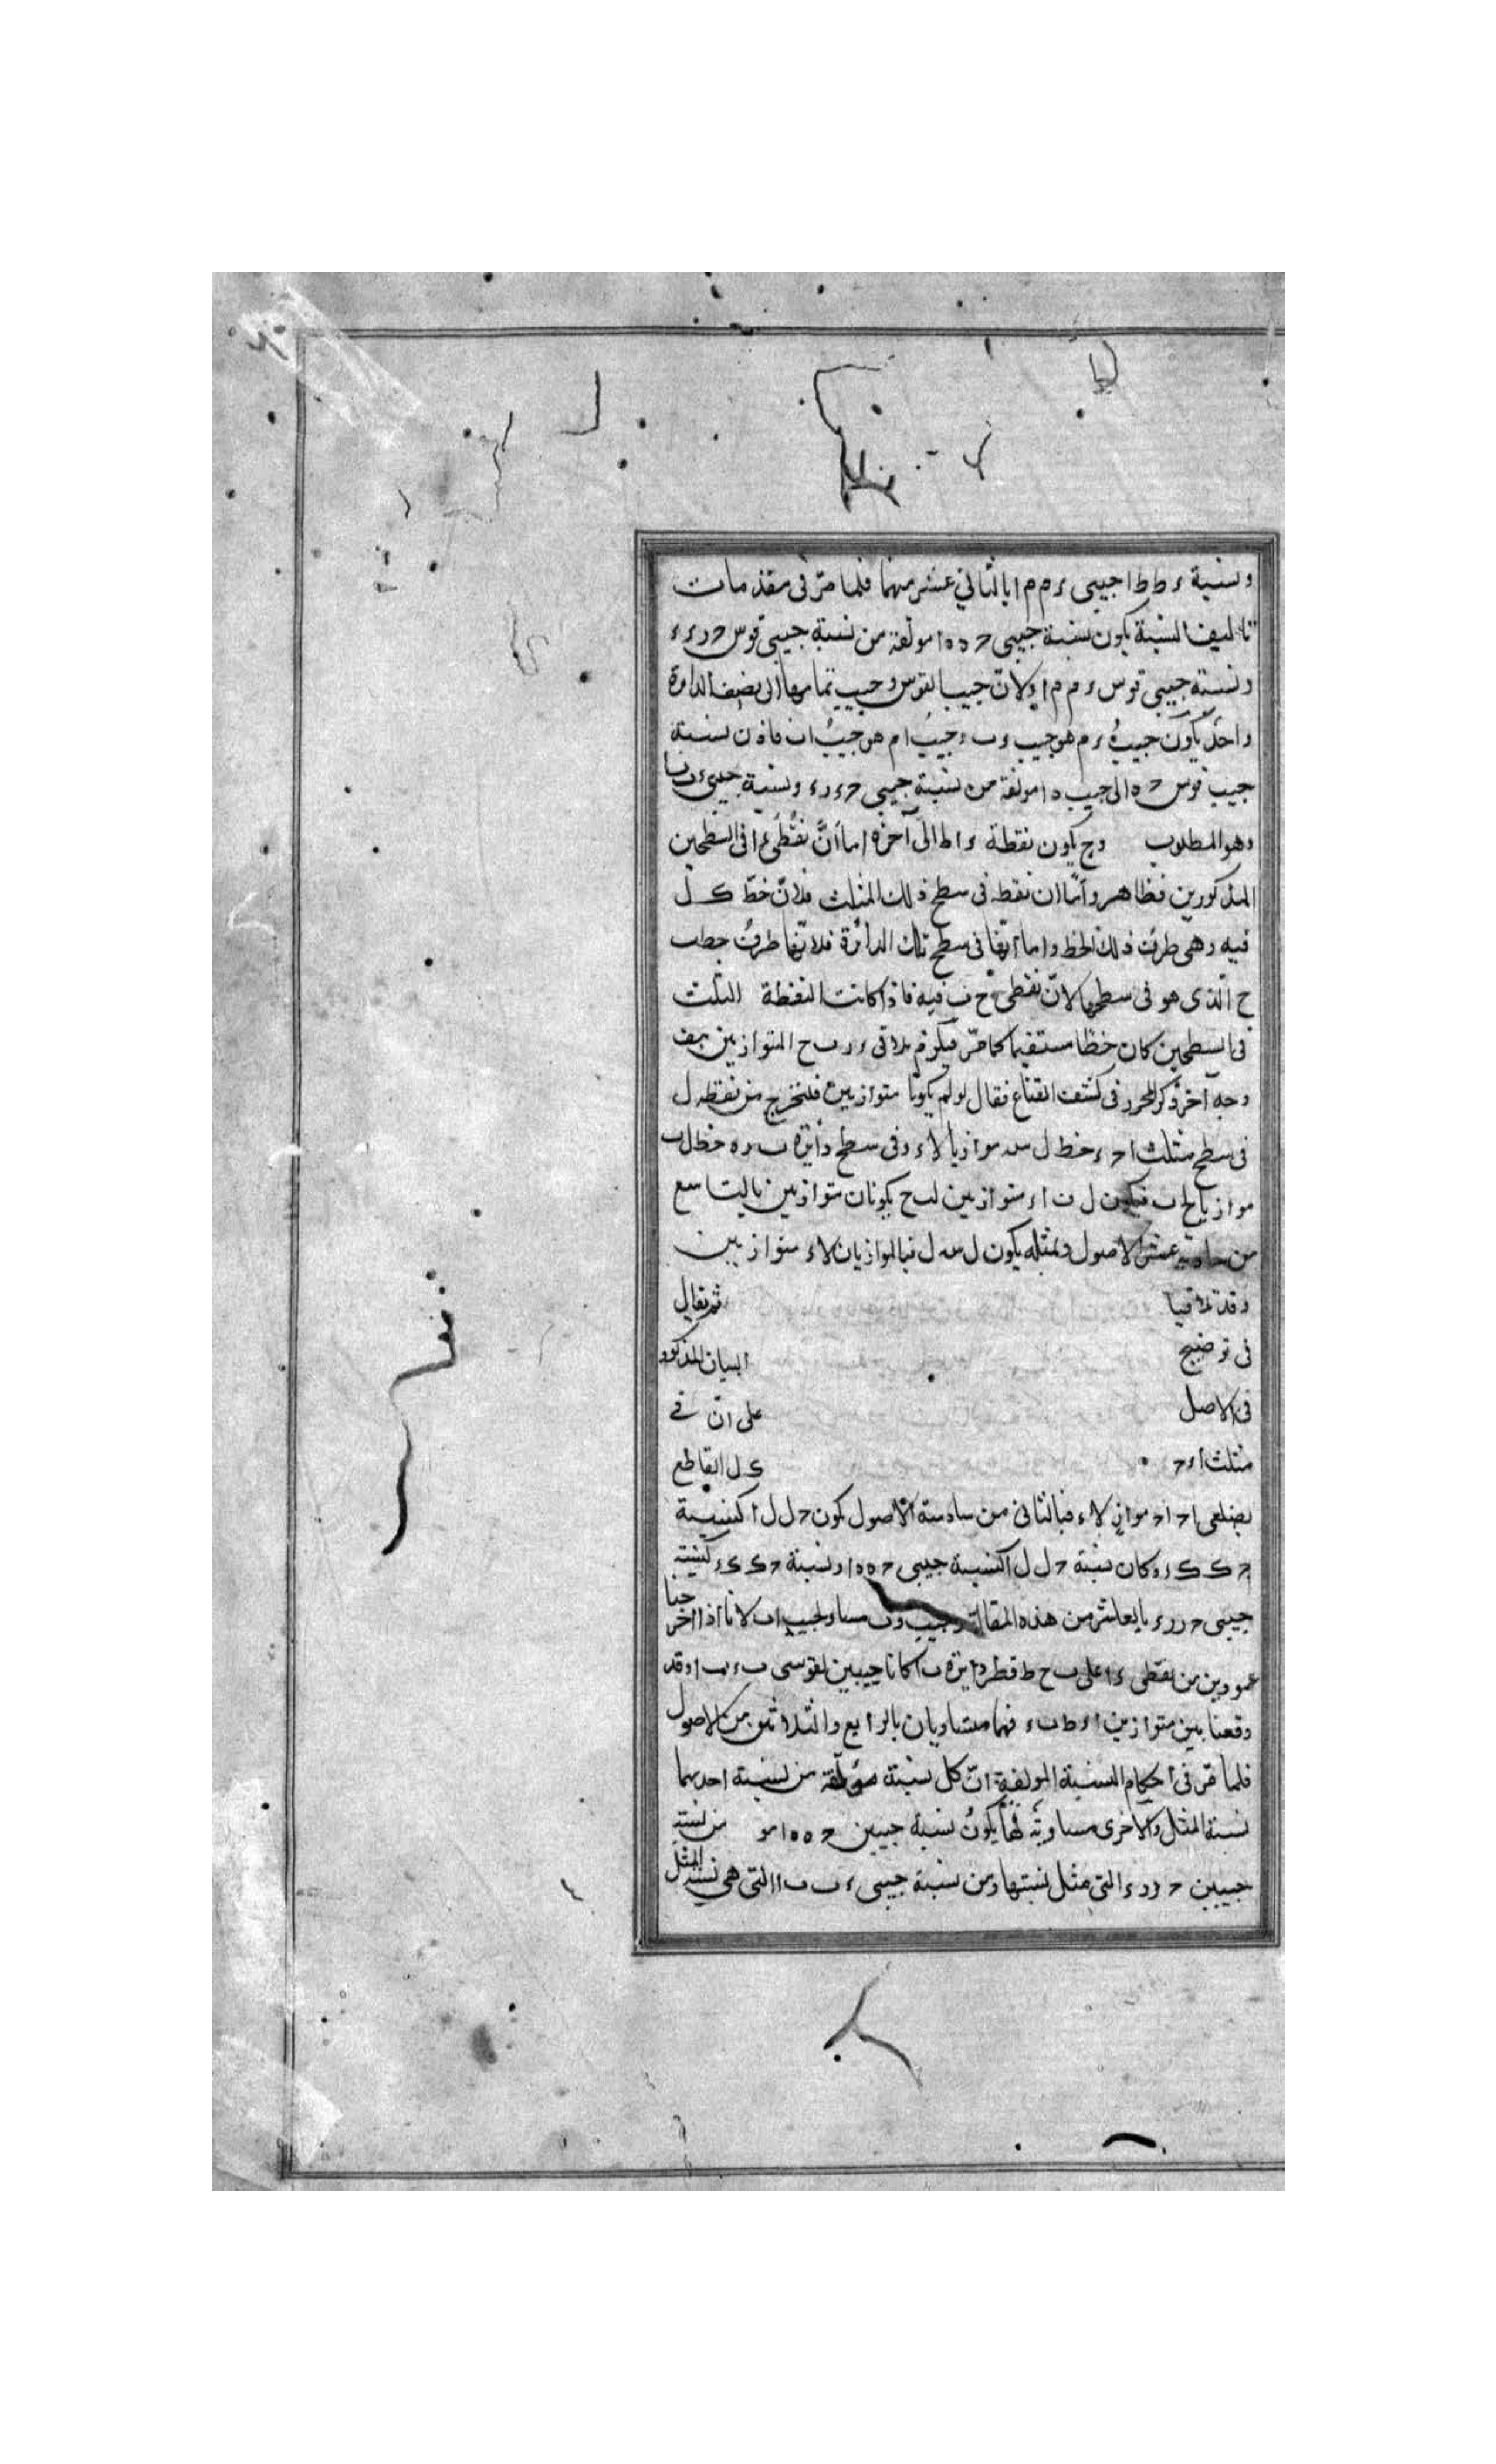 ونسبة ء ط ط ا جيبى ء م م ا بالثاني عشر منهما فلما مرّ فى مقدمات
تاليف النسبة يكون نسبة جيبى ح ه ه ا مولفة من نسبة جيبى قوس ح ر ر ء
ونسبة جيبى قوس ء م م ا ولانّ جيب القوس وجيب تمامها الى نصف الدائرة
واحد يكون جيب ء م هو جيب ء ب وجيب ا م هو جيب ا ب فاذن نسبة
جيب قوس ح ه الى جيب ه ا مولفة من نسبة جيبى ح ر ر ء ونسبة جيبى ء ب ب ا
وهو المطلوب وح يكون نقطة ء ا ط الى آخره اما أنّ نقطتى ء ا فى السطحين
المذكورين فظاهر وأمّا ان نقطه فى سطح ذلك المثلث فلانّ خطّ ك ل
فيه وهى طرف ذلك الخط واما أنّها فى سطح تلك الدائرة فلانّها طرف خط ب
ح الّذى هو فى سطحها لانّ نقطى ح ب فيه فاذا كانت النقطة الثلث
فى السطحين كان خطا مستقيما كما مرّ فيلزم تلاقى ء ر ب ح المتوازيين هف
وجه آخر ذكر المحرر فى كشف القناع فقال لو لم يكونا متوازيين فلنخرج من نقطه ل
فى سطح مثلث ا ح ء خط ل س موازيا لا ء وفى سطح دائرة ب ر ه خط ل ب
موازيا لح ب فيكون ل ن ا ء متوازيين لب ح يكونان متوازيين بالتاسع
من حادية عشر الاصول وبمثله يكون ل س ل ن الموازيان لا ء متوازيين
وقد تلاقيا ثم يقال
فى توضيح البيان المذكور
فى الاصل على انّ فى
مثلث ا ء ح ك ل القاطع
بضلعى ا ح ا ء مواز لا ء فبالثانى من سادسة الاصول كون ح ل ل ا كنسبة
ح ك ك ء وكان نسبة ح ل ل ا كنسبة جيبى ح ه ه ا ونسبة ح ك ك ء كنسبة
جيبى ح ر ر ء بالعاشر من هذه المقالة وجيب ء ب مساو لجيب ا ب لانا اذا اخرجنا
عمودين من نقطى ء ا على ب ح ط قطر دائرة ب ا كانا جيبين لقوسى ب ء ب ا وقد
وقعتا بين متوازيين ا ء ط ب ء فهما متساويان بالرابع والثلاثين من الاصول
فلما مرّ فى أحكام النسبة المولفة انّ كل نسبة مؤلفة من نسبة احدهما
نسبة المثل والاخرى مساوية لها يكون نسبة جيبين ح ه ه ا مو من نسبة
جيبين ح ر ر ء التى مثل نسبتها ومن نسبة جيبى ء ب ب ا التى هى نسبة المثل